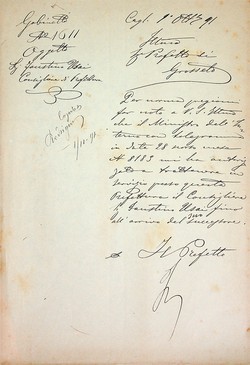 Gabinetto
N° 1611
Oggetto
Faustino Usai
Consigliere di Prefettura
Cagl. 1° Ott. 91
Ill.mo
Sig. Prefetto di
Grosseto
Per norma pregiomi
far noto a V. S. Ill.ma
che il Ministro dell'In
terno con telegramma
in data 28 mese
N 8183 mi ha autoriz
zato a trattenere in
servizio presso questa
Prefettura il Consigliere
Faustino Usai fino
all'arrivo del suo successore.
Il Prefetto